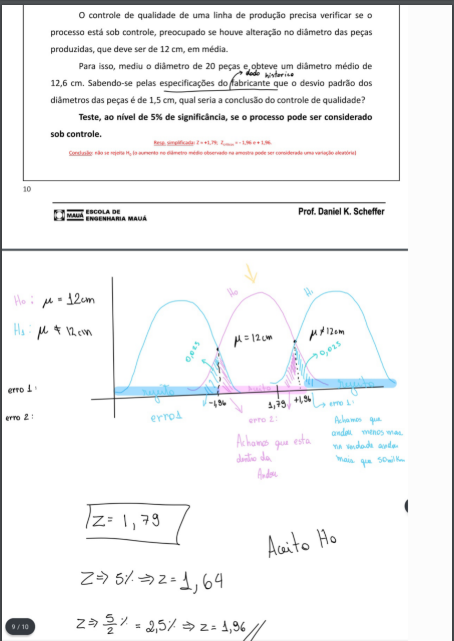 O controle de qualidade de uma linha de produção precisa verificar se o
processo está sob controle, preocupado se houve alteração no diâmetro das peças
produzidas, que deve ser de 12 cm, em média.
Para isso, mediu o diâmetro de 20 peças e obteve um diâmetro médio de
dado histórico
12,6 cm. Sabendo-se pelas especificações do fabricante que o desvio padrão dos
diâmetros das peças é de 1,5 cm, qual seria a conclusão do controle de qualidade?
Teste, ao nível de 5% de significância, se o processo pode ser considerado
sob controle.
Resp. simplificada: Z = +1,79; Zcríticos = - 1,96 e + 1,96.
Conclusão: não se rejeita H₀ (o aumento no diâmetro médio observado na amostra pode ser considerada uma variação aleatória)
10
MAUÁ ESCOLA DE
ENGENHARIA MAUÁ
Prof. Daniel K. Scheffer
H₀ H₁
H₀ : μ = 12cm
H₁ : μ ≠ 12cm
μ = 12cm μ ≠ 12cm
0,025 0,025
erro 1:
-1,96 1,79 +1,96
erro 2:
erro1 erro 2: erro 1:
Achamos que esta
dentro da
Achamos que
andou menos mas
na verdade andou
mais que 50mil Km
Z = 1,79
Aceito H₀
Z ⇒ 5% ⇒ Z = 1,64
Z ⇒ 5/2 % = 2,5% ⇒ Z = 1,96 //
9 / 10